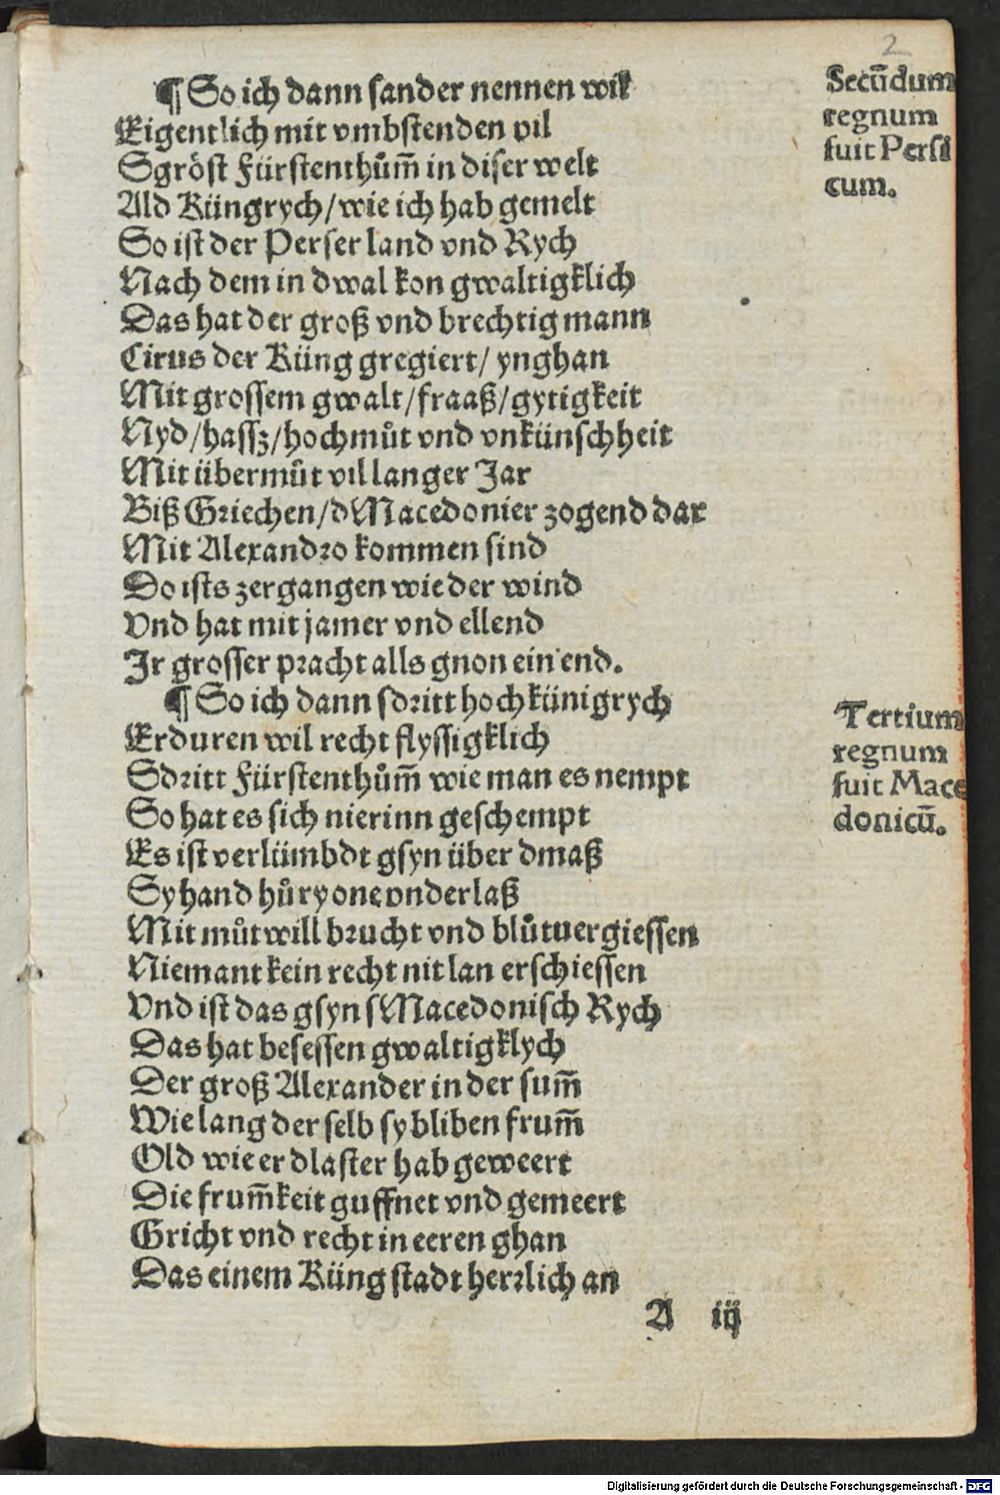 2
¶ So ich dann sander nennen wil
Eigentlich mit vmbstenden vil
Sgröst Fürstenthům̄ in diser welt
Ald Küngrych/wie ich hab gemelt
So ist der Perser land vnd Rych
Nach dem in dwal kon gwaltigklich
Das hat der groß vnd brechtig mann
Cirus der Küng gregiert/ ynghan
Mit grossem gwalt/fraaß/gytigkeit
Nyd/hassz/hochmůt vnd vnkünschheit
Mit übermůt vil langer Jar
Biß Griechen/d Macedonier zogend dar
Mit Alexandro kommen sind
Do ists zergangen wie der wind
Vnd hat mit jamer vnd ellend
Jr grosser pracht alls gnon ein end.
¶ So ich dann sdritt hochkünigrych
Erduren wil recht flyssigklich
Sdritt Fürstenthům̄ wie man es nempt
So hat es sich nierinn geschempt
Es ist verlümbdt gsyn über dmaß
Sy hand hůry one vnderlaß
Mit můtwill brucht vnd blůtuergiessen
Niemant kein recht nit lan erschiessen
Vnd ist das gsyn s Macedonisch Rych
Das hat besessen gwaltigklych
Der groß Alexander in der sum̄
Wie lang der selb sy bliben frum̄
Old wie er dlaster hab geweert
Die frum̄keit guffnet vnd gemeert
Gricht vnd recht in eeren ghan
Das einem Küng stadt herrlich an
A iij
Secūdum
regnum
fuit Persi
cum.
Tertium
regnum
fuit Mace
donicū.
Digitalisierung gefördert durch die Deutsche Forschungsgemeinschaft - DFG